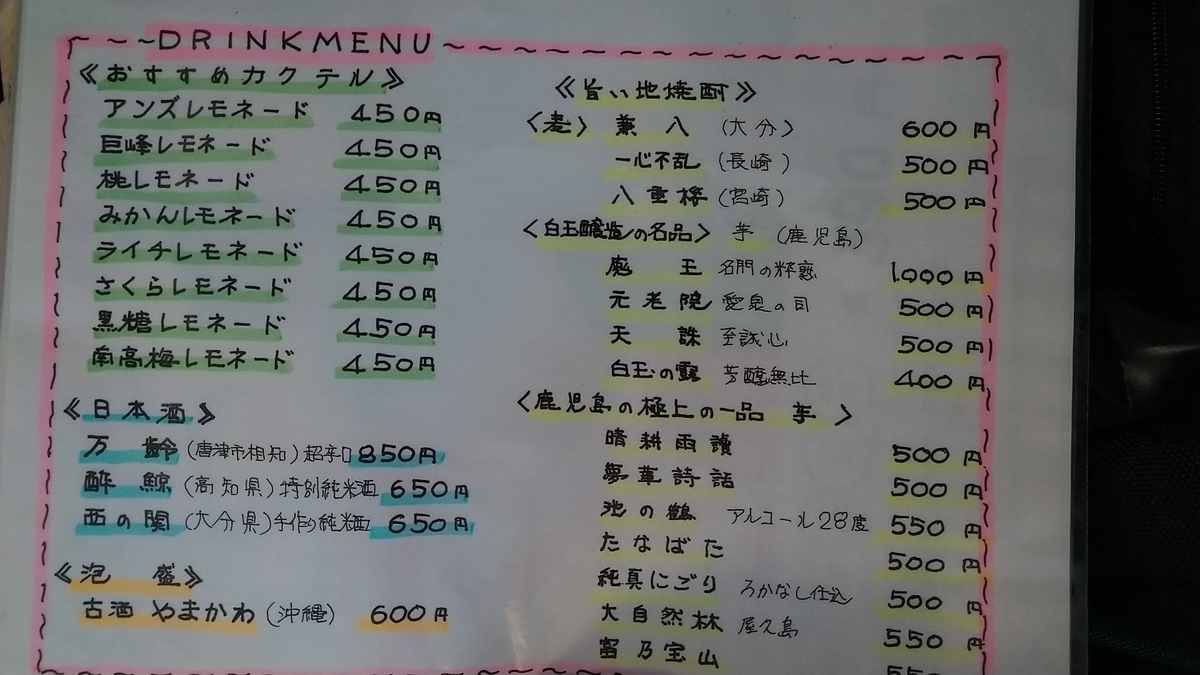 DRINKMENU
《おすすめカクテル》
アンズレモネード 450円
巨峰レモネード 450円
桃レモネード 450円
みかんレモネード 450円
ライチレモネード 450円
さくらレモネード 450円
黒糖レモネード 450円
南高梅レモネード 450円
《日本酒》
万 齢 (唐津市相知) 超辛口 850円
酔 鯨 (高知県) 特別純米酒 650円
西の関 (大分県) 手作り純米酒 650円
《泡 盛》
古酒 やまかわ (沖縄) 600円
《旨い地焼酎》
〈麦〉 兼 八 (大分) 600円
一心不乱 (長崎) 500円
八重桜 (宮崎) 500円
〈白玉醸造の名品〉 芋 (鹿児島)
魔 王 名門の粋 1,000円
元老院 愛泉の司 500円
天 誅 至誠心 500円
白玉の露 芳醇無比 400円
〈鹿児島の極上の一品 芋 〉
晴耕雨讀 500円
夢華詩話 500円
池の鶴 アルコール28度 550円
たなばた 500円
純真にごり ろかなし仕込 500円
大自然林 屋久島 550円
富乃宝山